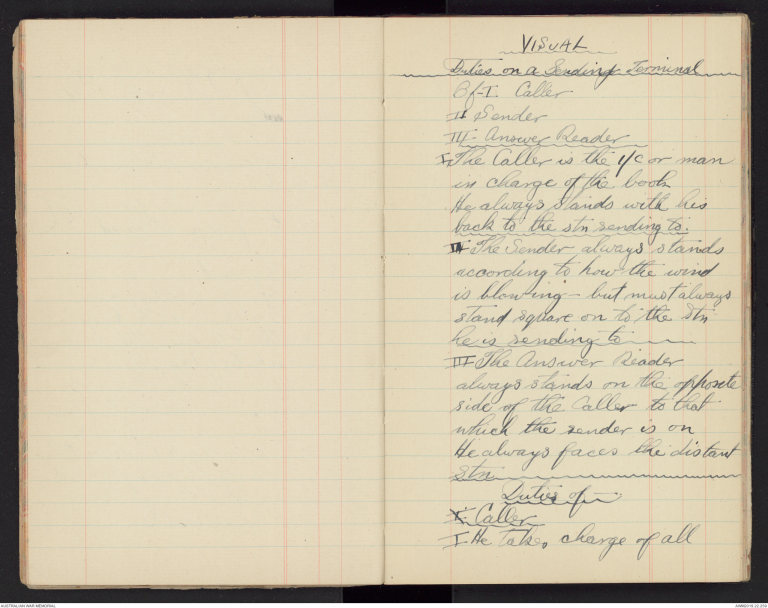 VISUAL
Duties on a Sending Terminal
Of - I. Caller
II Sender
III - Answer Reader
I, The Caller is the I/C or man
in charge of the book
He always stands with his
back to the stn sending to.
II - The Sender always stands
according to how the wind
is blowing - but must always
stand square on to the Stn
he is sending to
III - The Answer Reader
always stands on the opposite
side of the Caller to that
which the sender is on
He always faces the distant
Stn
Duties of -
I. Caller
I He takes charge of all
AUSTRALIAN WAR MEMORIAL